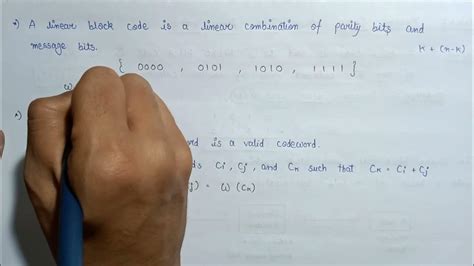 *) A linear block code is a linear combination of parity bits and
message bits. k + (n-k)
{ 0000 , 0101 , 1010 , 1111 }
*)
is a valid codeword.
Ci , Cj , and Ck such that Ck = Ci + Cj
) = ω (Ck)